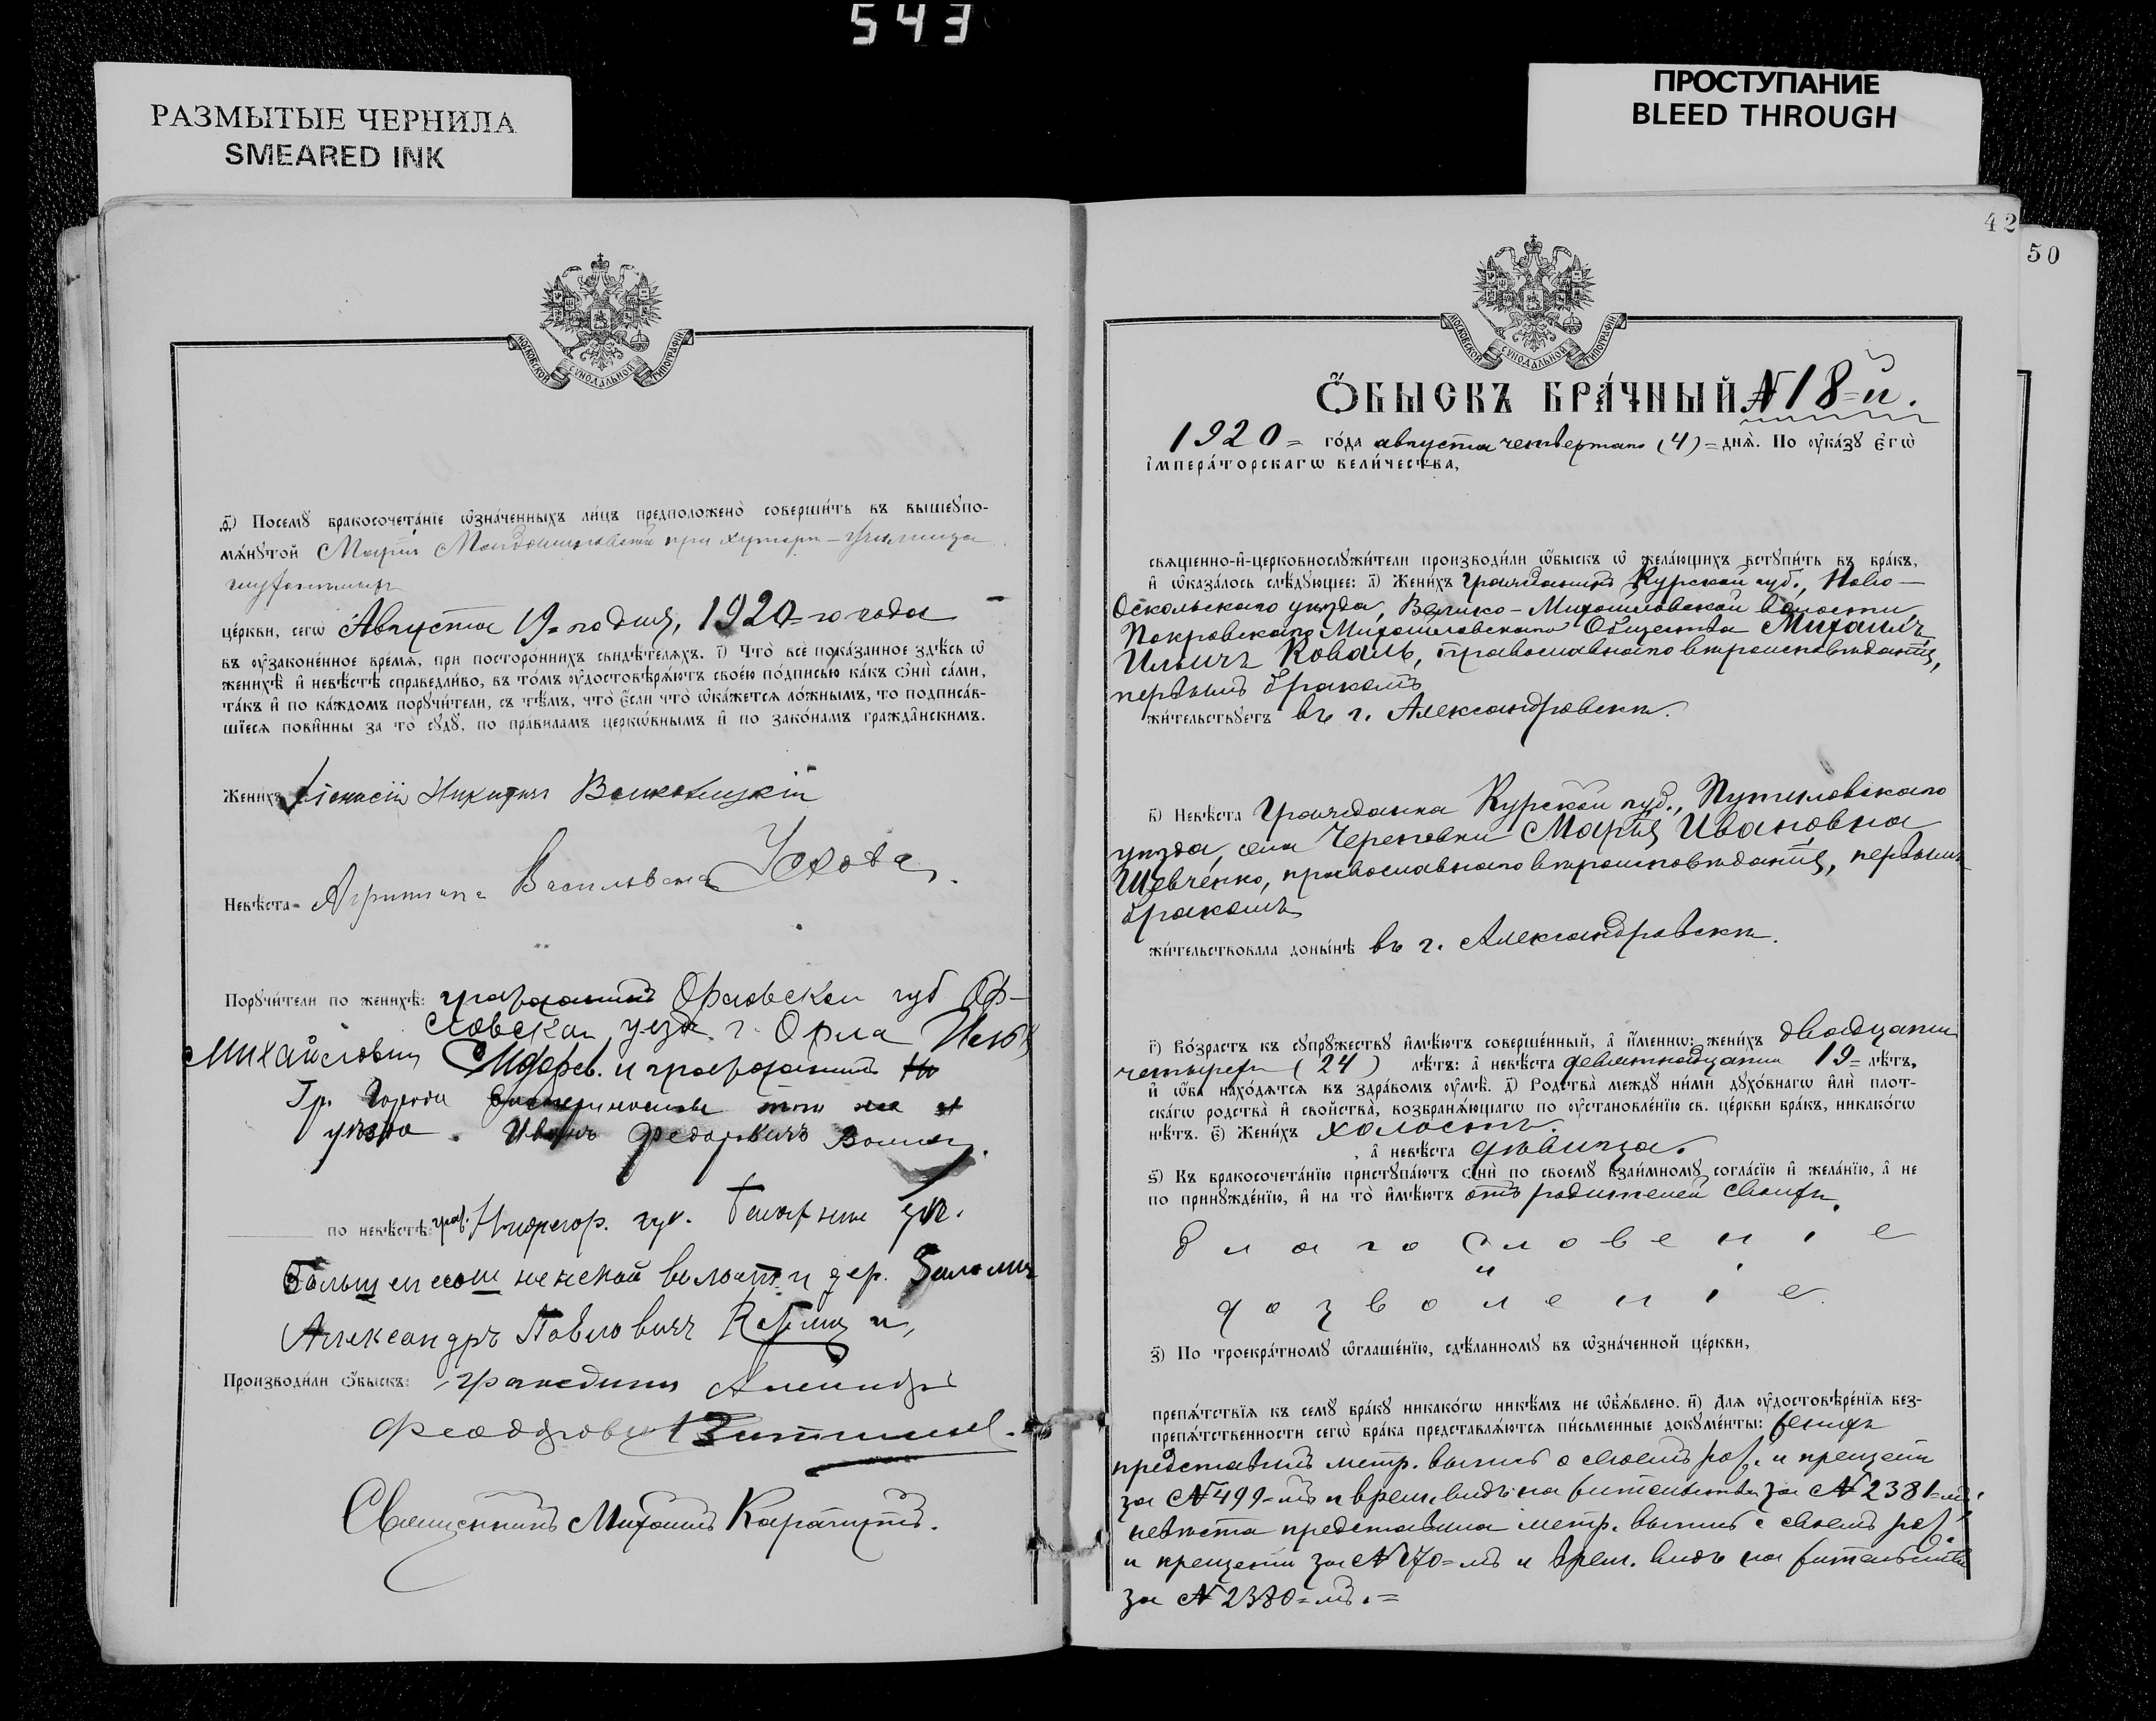 543
РАЗМЫТЫЕ ЧЕРНИЛА
SMEARED INK
ПРОСТУПАНИЕ
BLEED THROUGH
МОСКОВСКОЙ СУНОДАЛЬНОЙ ТИПОГРАФІИ
д҃) Посемꙋ бракосочета́нїе ѡ҆зна́ченныхъ ли́цъ предположено̀ соверши́ть въ вышеꙋпо-
мѧ́нꙋтой Марiи при хуторѣ
це́ркви, сегѡ̀ Августа 19=го дня, 1920=го года
въ ᲂу҆законе́нное вре́мѧ, при посторо́ннихъ свидѣ́телѧхъ. і҃) Что̀ всѐ пока́занное здѣ́сь ѡ҆
женихѣ̀ и҆ невѣ́стѣ справедли́во, въ то́мъ ᲂу҆достовѣрѧ́ютъ свое́ю по́дписью ка́къ ѻ҆нѝ са́ми,
та́къ и҆ по ка́ждомъ порꙋчи́тели, съ тѣ́мъ, что̀ є҆́сли что̀ ѡ҆ка́жетсѧ ло́жнымъ, то подписа́в-
шїесѧ пови́нны за то̀ сꙋдꙋ̀, по пра́виламъ церкѡ́внымъ и҆ по зако́намъ гражда̑нскимъ.
Жени́хъ Никитичъ
Невѣ́ста Васильевна Ухова
Порꙋчи́тели по женихѣ̀: гражданинъ Орловской губ Ор-
ловскаи уезд г. Орла Илья
Михайлович Сидорев. и гражданинъ
Гр. Города
уезда. Иванъ Федоровичъ
по невѣ́стѣ: граж. Нижегор. губ. уѣз.
волости дер.
Александръ Павловичъ
Производи́ли ѻ҆́быскъ: гражданин
Феодорович
Священникъ Михаилъ
42
50
МОСКОВСКОЙ СУНОДАЛЬНОЙ ТИПОГРАФІИ
Ѻ҆́БЫСКЪ БРА́ЧНЫЙ N 18=й.
1920= го́да августа четвертаго (4)= днѧ̀. По ᲂу҆ка́зꙋ є҆гѡ̀
і҆мпера́торскагѡ вели́чества,
свѧще́нно-и҆-церковнослꙋжи́тели производи́ли ѻ҆́быскъ ѡ҆ жела́ющихъ встꙋпи́ть въ бра́къ,
и҆ ѡ҆каза́лось слѣ́дꙋющее: а҃) Жени́хъ Гражданинъ Курской губ., Ново-
Оскольскаго уѣзда, Велико-Михайловской волости
Покровскаго Михайловскаго Общества Михаилъ
Ильичъ Коваль, православнаго вѣроисповѣданія,
первымъ бракомъ
жи́тельствꙋетъ въ г. Александровскѣ.
в҃) Невѣ́ста Гражданка Курской губ., Путивловскаго
уѣзда, села Череповки Марія Ивановна
Шевченко, православнаго вѣроисповѣданія, первымъ
бракомъ
жи́тельствовала доны́нѣ въ г. Александровскѣ.
г҃) Во́зрастъ къ сꙋпрꙋ́жествꙋ и҆мѣ́ютъ соверше́нный, а҆ и҆́меннѡ: жени́хъ двадцати
четырехъ (24) лѣ́тъ: а҆ невѣ́ста девятнадцати 19= лѣ́тъ,
и҆ ѻ҆́ба нахо́дѧтсѧ въ здра́вомъ ᲂу҆мѣ̀. д҃) Родства̀ междꙋ ни́ми дꙋхо́внагѡ и҆лѝ плот-
ска́гѡ родства̀ и҆ сво́йства, возбранѧ́ющагѡ по ᲂу҆становле́нїю св. це́ркви бра́къ, никако́гѡ
нѣ́тъ. є҃) Жени́хъ холостъ.
, а҆ невѣ́ста дѣвица.
ѕ҃) Къ бракосочета́нїю пристꙋпа́ютъ ѻ҆нѝ по своемꙋ̀ взаи́мномꙋ согла́сїю и҆ жела́нїю, а҆ не
по принꙋжде́нїю, и҆ на то̀ и҆мѣ́ютъ отъ родителей своихъ
благословеніе
и
дозволеніе.
з҃) По троекра́тномꙋ ѡ҆глаше́нїю, сдѣ́ланномꙋ въ ѡ҆зна́ченной це́ркви,
препѧ́тствїѧ къ семꙋ̀ бра́кꙋ никако́гѡ никѣ́мъ не ѡ҆б̾ѧ́влено. и҃) Для ᲂу҆достовѣре́нїѧ без-
препѧ́тственности сегѡ̀ бра́ка представлѧ́ютсѧ пи́сьменные докꙋме́нты: женихъ
представилъ метр. выпись о своемъ рож. и крещеніи
за N 499=мъ и врем. видъ на жительство за N 2381=мъ;
невѣста представила метр. выпись о своемъ рож.
и крещеніи за N 270=мъ и врем. видъ на жительство
за N 2380=мъ.=